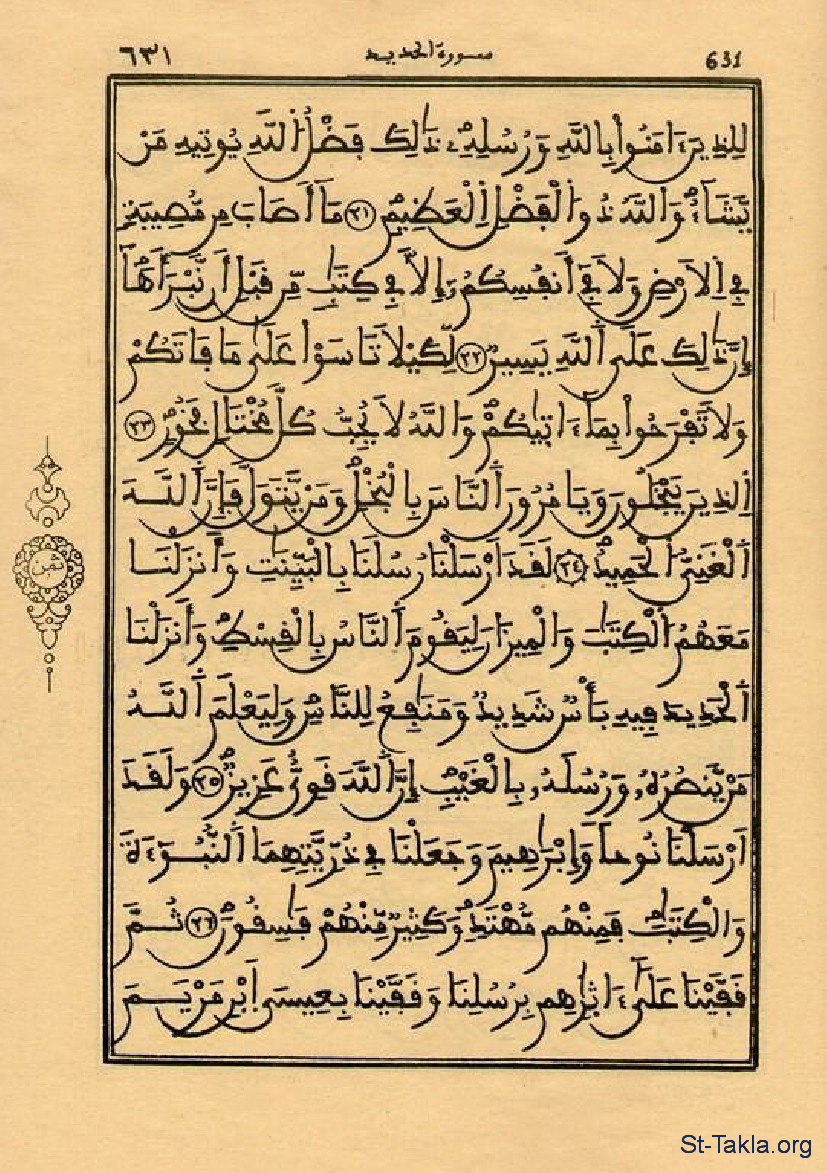 ٦٣١ سورة الحديد 631
لِلذِينَ ءَامَنُواْ بِاللَّهِ وَرُسُلِهِۦ ذَٰلِكَ فَضْلُ اُللَّهِ يُوتِيهِ مَنْ
يَّشَآءُ وَاللَّهُ ذُو اُلْفَضْلِ اِلْعَظِيمِ ٢١ مَآ أَصَابَ مِن مُّصِيبَةٍ
فِي اِلَارْضِ وَلَا فِي أَنفُسِكُمُۥ إِلَّا فِي كِتَٰبٍ مِّن قَبْلِ أَن نَّبْرَأَهَآ
إِنَّ ذَٰلِكَ عَلَى اَللَّهِ يَسِيرٌ ٢٢ لِّكَيْلَا تَاسَوْاْ عَلَىٰ مَا فَاتَكُمْ
وَلَا تَفْرَحُواْ بِمَآ ءَاتَٜيٰكُمْ وَاللَّهُ لَا يُحِبُّ كُلَّ مُخْتَالٍ فَخُورٍ ٢٣
اِلذِينَ يَبْخَلُونَ وَيَامُرُونَ اَلنَّاسَ بِالْبُخْلِ وَمَنْ يَّتَوَلَّ فَإِنَّ اَللَّهَ
اَلْغَنِيُّ اُلْحَمِيدُ ٢٤ لَقَدَ اَرْسَلْنَا رُسُلَنَا بِالْبَيِّنَٰتِ وَأَنزَلْنَا
مَعَهُمُ اُلْكِتَٰبَ وَالْمِيزَانَ لِيَقُومَ اَلنَّاسُ بِالْقِسْطِ وَأَنزَلْنَا
اَلْحَدِيدَ فِيهِ بَأْسٌ شَدِيدٌ وَمَنَٰفِعُ لِلنَّاسِ وَلِيَعْلَمَ اَللَّهُ
مَنْ يَّنصُرُهُۥ وَرُسُلَهُۥ بِالْغَيْبِ إِنَّ اَللَّهَ قَوِيٌّ عَزِيزٌ ٢٥ وَلَقَدَ
اَرْسَلْنَا نُوحاً وَإِبْرَٰهِيمَ وَجَعَلْنَا فِي ذُرِّيَّتِهِمَا اَلنُّبُوٓءَةَ
وَالْكِتَٰبَ فَمِنْهُم مُّهْتَدٍ وَكَثِيرٌ مِّنْهُمْ فَٰسِقُونَ ٢٦ ثُمَّ
قَفَّيْنَا عَلَىٰٓ ءَاثٰ۪رِهِم بِرُسُلِنَا وَقَفَّيْنَا بِعِيسَى اَبْنِ مَرْيَمَ
ثمن
St-Takla.org